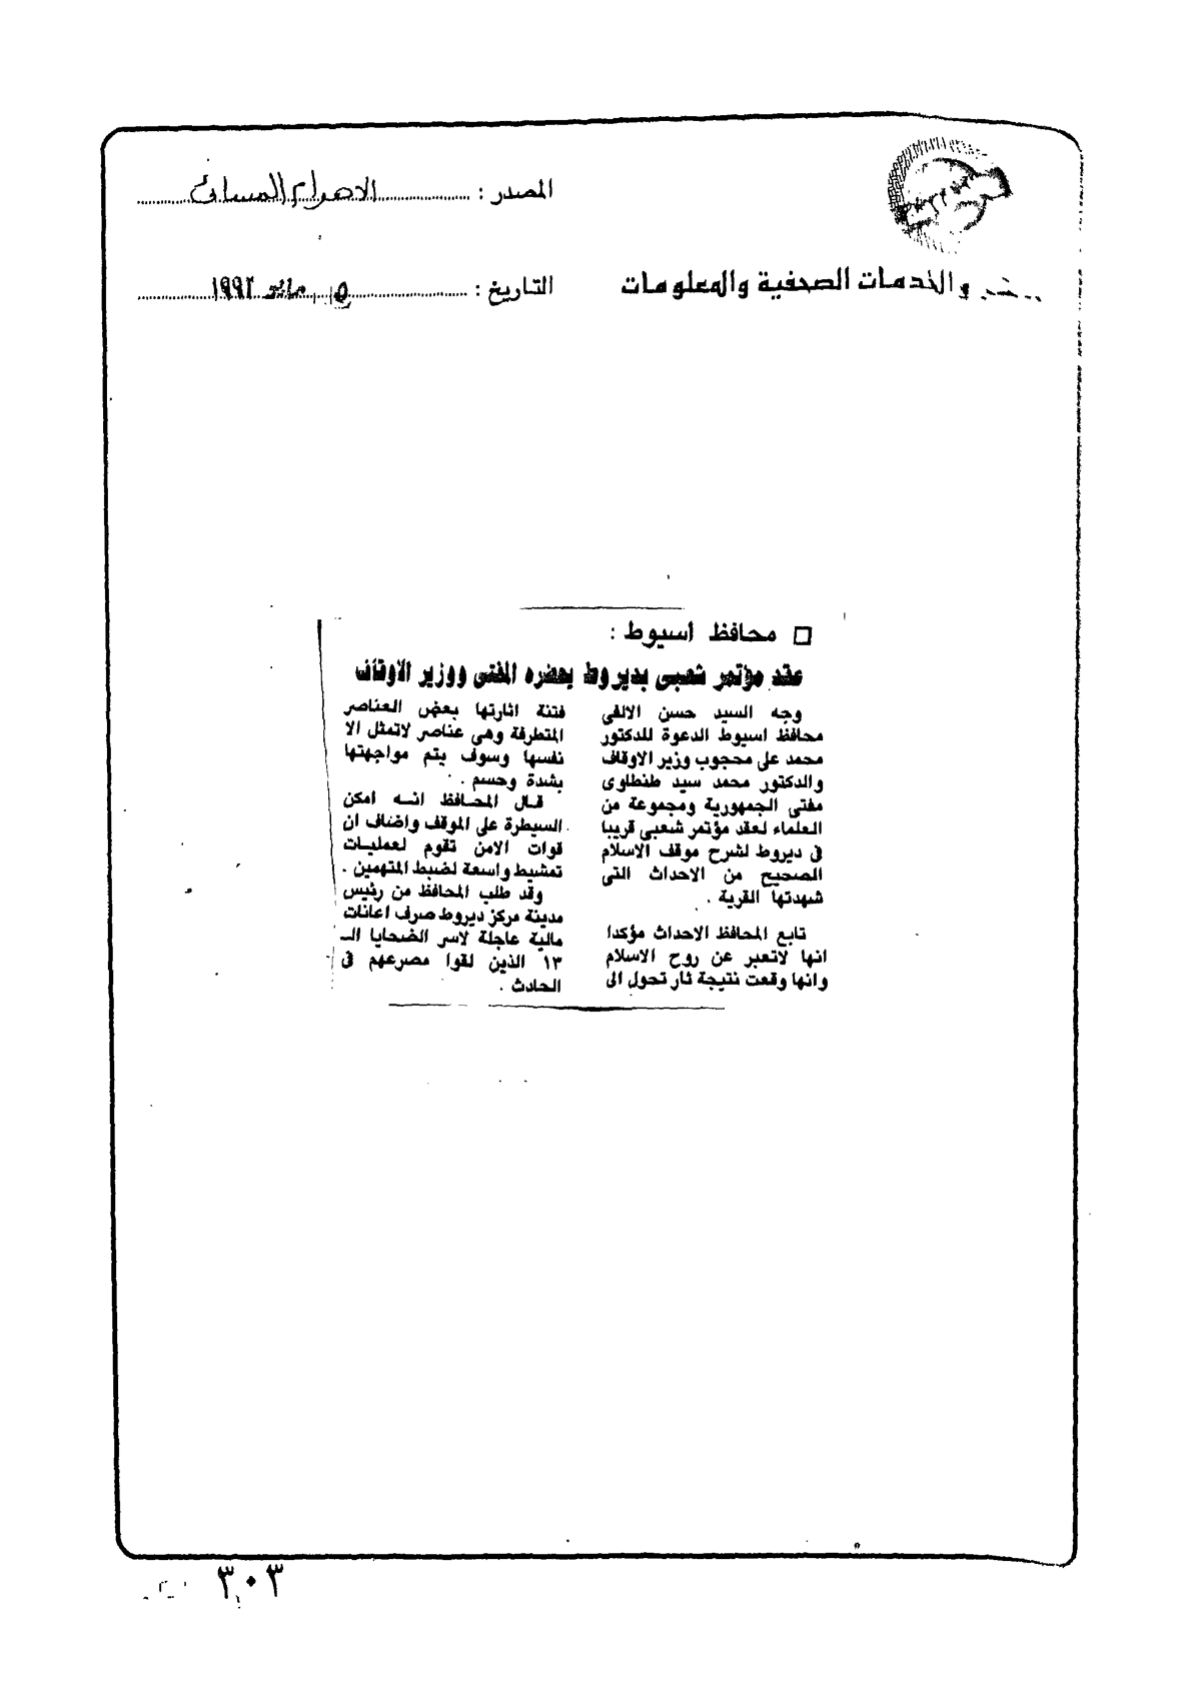 المصدر : الاهرام المسائى
والخدمات الصحفية والمعلومات
التاريخ : ٥ مايو ١٩٩٢
محافظ أسيوط :
عقد مؤتمر شعبى بديروط يحضره المفتى ووزير الأوقاف
وجه السيد حسن الالفى
محافظ اسيوط الدعوة للدكتور
محمد على محجوب وزير الاوقاف
والدكتور محمد سيد طنطاوى
مفتى الجمهورية ومجموعة من
العلماء لعقد مؤتمر شعبى قريبا
فى ديروط لشرح موقف الاسلام
الصحيح من الاحداث التى
شهدتها القرية .
تابع المحافظ الاحداث مؤكدا
انها لاتعبر عن روح الاسلام
وانها وقعت نتيجة ثار تحول الى
فتنة اثارتها بعض العناصر
المتطرفة وهى عناصر لاتمثل الا
نفسها وسوف يتم مواجهتها
بشدة وحسم .
قال المحافظ انه امكن
السيطرة على الموقف واضاف ان
قوات الامن تقوم لعمليات
تمشيط واسعة لضبط المتهمين .
وقد طلب المحافظ من رئيس
مدينة مركز ديروط صرف اعانات
مالية عاجلة لاسر الضحايا الـ
١٣ الذين لقوا مصرعهم فى
الحادث .
٣٠٣